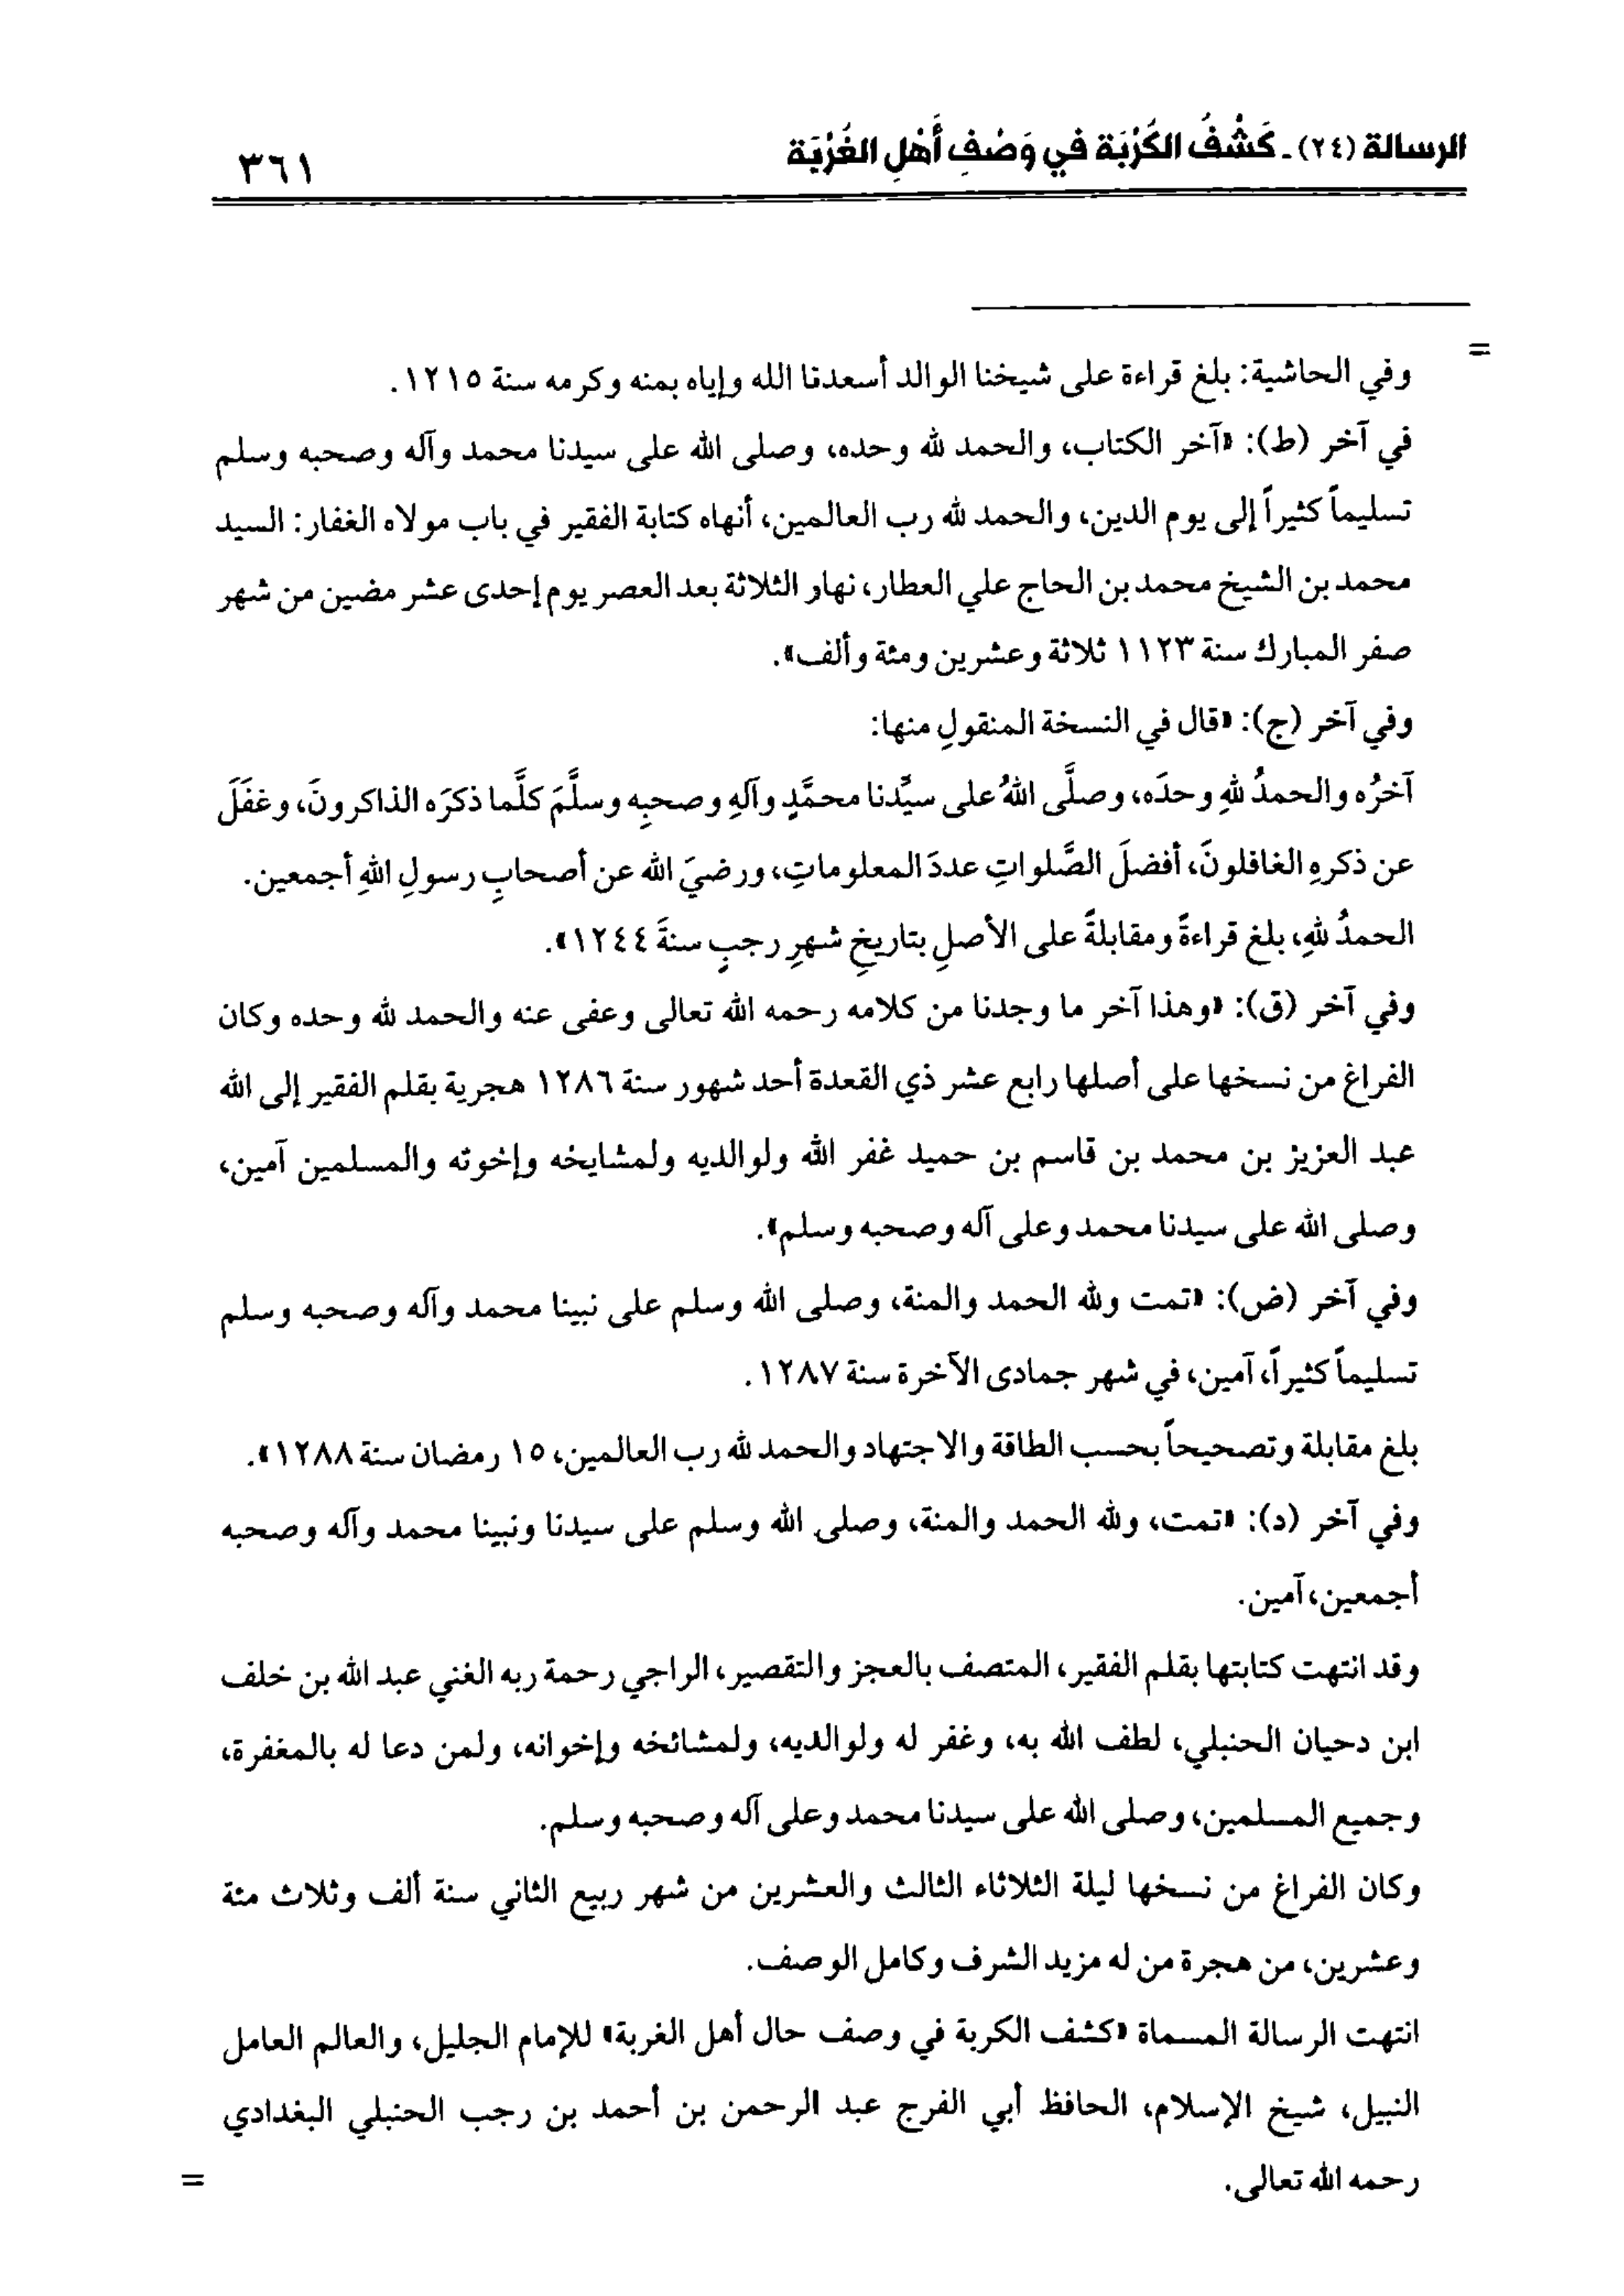 الرسالة (٢٤) ـ كَشْفُ الكُرْبَة في وَصْفِ أَهْلِ الغُرْبَة
٣٦١
=
وفي الحاشية: بلغ قراءة على شيخنا الوالد أسعدنا الله وإياه بمنه وكرمه سنة ١٢١٥.
في آخر (ط): «آخر الكتاب، والحمد لله وحده، وصلى الله على سيدنا محمد وآله وصحبه وسلم
تسليماً كثيراً إلى يوم الدين، والحمد لله رب العالمين، أنهاه كتابة الفقير في باب مولاه الغفار: السيد
محمد بن الشيخ محمد بن الحاج علي العطار، نهار الثلاثة بعد العصر يوم إحدى عشر مضين من شهر
صفر المبارك سنة ١١٢٣ ثلاثة وعشرين ومئة وألف».
وفي آخر (ج): «قال في النسخة المنقولِ منها:
آخرُه والحمدُ للهِ وحدَه، وصلَّى اللهُ على سيِّدنا محمَّدٍ وآلهِ وصحبِه وسلَّمَ كلَّما ذكرَه الذاكرونَ، وغفَلَ
عن ذكرهِ الغافلونَ، أفضلَ الصَّلواتِ عددَ المعلوماتِ، ورضيَ الله عن أصحابِ رسولِ اللهِ أجمعين.
الحمدُ للهِ، بلغ قراءةً ومقابلةً على الأصلِ بتاريخِ شهرِ رجبٍ سنةَ ١٢٤٤».
وفي آخر (ق): «وهذا آخر ما وجدنا من كلامه رحمه الله تعالى وعفى عنه والحمد لله وحده وكان
الفراغ من نسخها على أصلها رابع عشر ذي القعدة أحد شهور سنة ١٢٨٦ هجرية بقلم الفقير إلى الله
عبد العزيز بن محمد بن قاسم بن حميد غفر الله ولوالديه ولمشايخه وإخوته والمسلمين آمين،
وصلى الله على سيدنا محمد وعلى آله وصحبه وسلم».
وفي آخر (ض): «تمت ولله الحمد والمنة، وصلى الله وسلم على نبينا محمد وآله وصحبه وسلم
تسليماً كثيراً، آمين، في شهر جمادى الآخرة سنة ١٢٨٧.
بلغ مقابلة وتصحيحاً بحسب الطاقة والاجتهاد والحمد لله رب العالمين، ١٥ رمضان سنة ١٢٨٨».
وفي آخر (د): «تمت، ولله الحمد والمنة، وصلى الله وسلم على سيدنا ونبينا محمد وآله وصحبه
أجمعين، آمين.
وقد انتهت كتابتها بقلم الفقير، المتصف بالعجز والتقصير، الراجي رحمة ربه الغني عبد الله بن خلف
ابن دحيان الحنبلي، لطف الله به، وغفر له ولوالديه، ولمشائخه وإخوانه، ولمن دعا له بالمغفرة،
وجميع المسلمين، وصلى الله على سيدنا محمد وعلى آله وصحبه وسلم.
وكان الفراغ من نسخها ليلة الثلاثاء الثالث والعشرين من شهر ربيع الثاني سنة ألف وثلاث مئة
وعشرين، من هجرة من له مزيد الشرف وكامل الوصف.
انتهت الرسالة المسماة «كشف الكربة في وصف حال أهل الغربة» للإمام الجليل، والعالم العامل
النبيل، شيخ الإسلام، الحافظ أبي الفرج عبد الرحمن بن أحمد بن رجب الحنبلي البغدادي
رحمه الله تعالى.
=